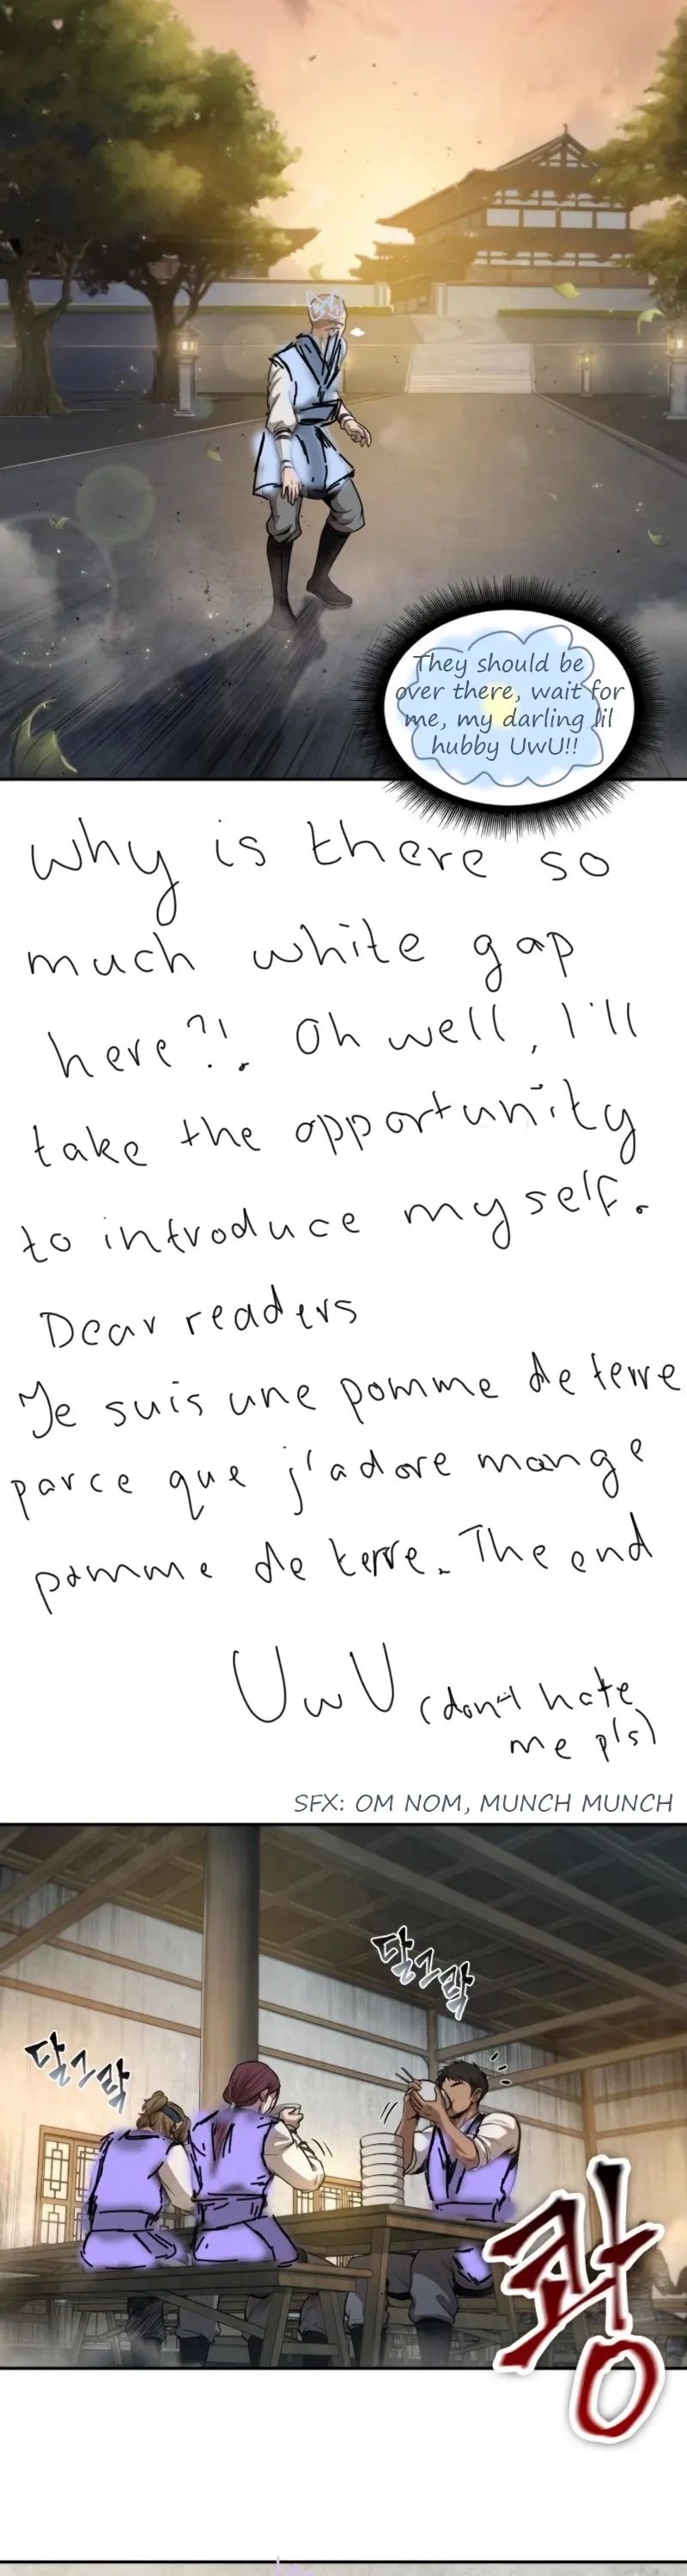 They should be
over there, wait for
me, my darling lil
hubby UwU!!
Why is there so
much white gap
here?!. Oh well, I'll
take the opportunity
to introduce myself.
Dear readers
Je suis une pomme de terre
parce que j'adore mange
pomme de terre. The end
UwU (don't hate
me pls)
SFX: OM NOM, MUNCH MUNCH
달그락
달그락
쾅